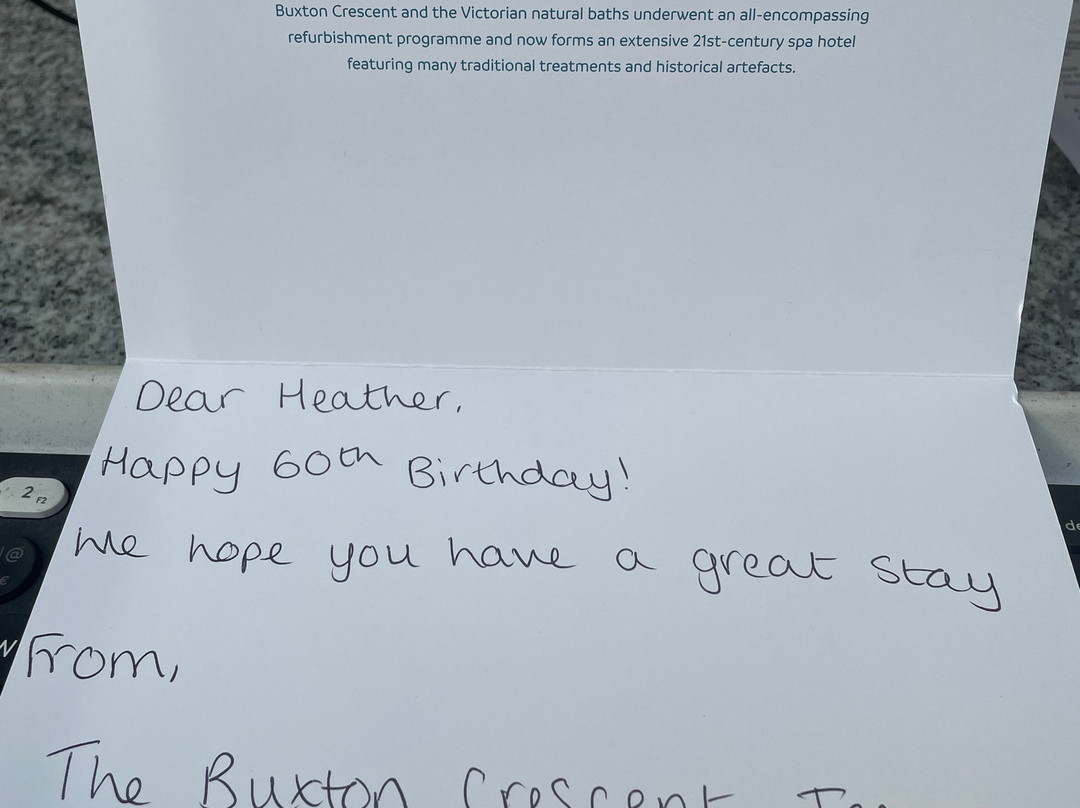 Buxton Crescent and the Victorian natural baths underwent an all-encompassing
refurbishment programme and now forms an extensive 21st-century spa hotel
featuring many traditional treatments and historical artefacts.
Dear Heather,
Happy 60th Birthday!
We hope you have a great stay
From,
The Buxton Crescent
2 F2
@
€
de